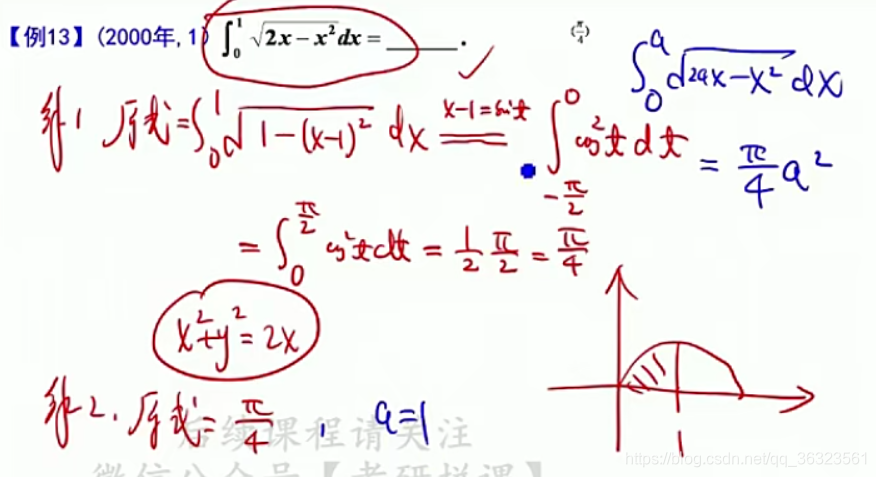 【例13】(2000年,1) ∫₀¹ √(2x − x²) dx = ______. (π/4)
∫₀ᵃ √(2ax − x²) dx
解1 原式 = ∫₀¹ √(1 − (x−1)²) dx ==(x−1 = sin t)== ∫_{−π/2}^{0} cos²t dt
= π/4 a²
= ∫₀^{π/2} cos²t dt = 1/2 π/2 = π/4
x² + y² = 2x
解2. 原式 = π/4 , a = 1
1
后续课程请关注
https://blog.csdn.net/qq_36323561